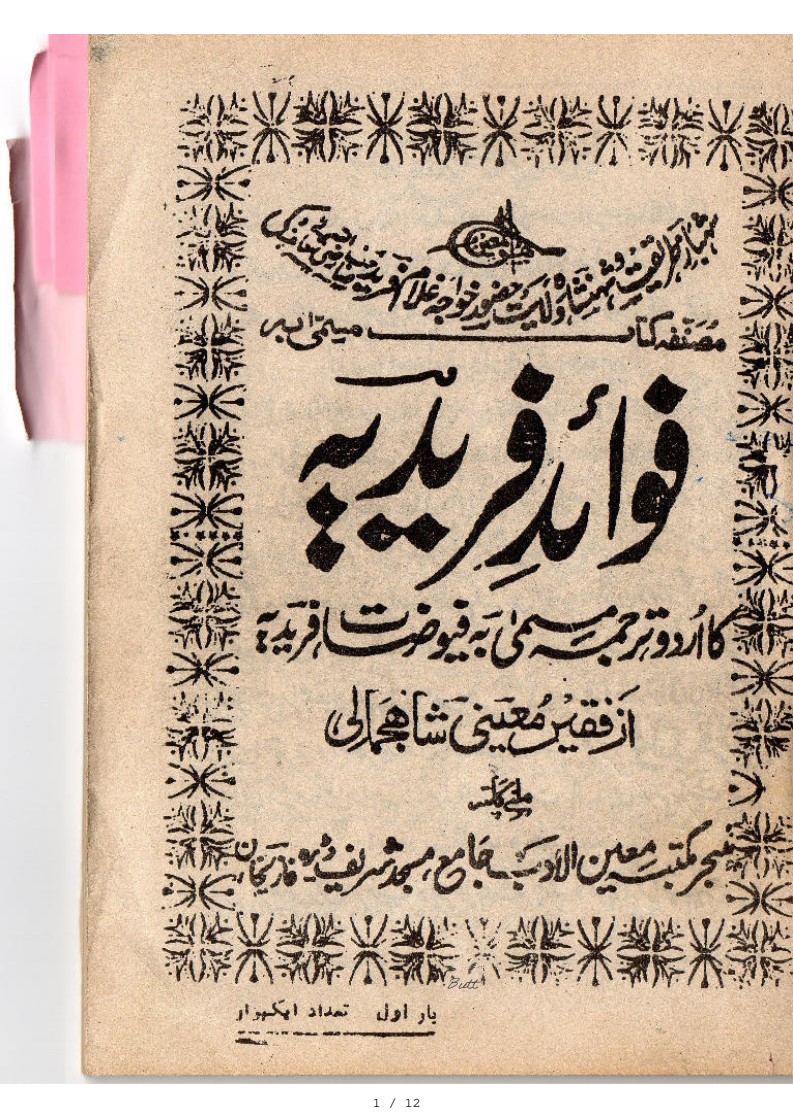 شہباز طریقت و شہنشاہ ولایت حضور خواجہ غلام فرید
مصنفہ کتاب مسمّٰی بہ
فوائد فریدیہ
کا اُردو ترجمہ مسمیٰ بہ فیوضات فریدیہ
از فقیر مُعینی شاہجمالی
ملنے کا پتہ
منیجر مکتبہ معین الادب جامع مسجد شریف ڈیرہ غازیخان
Butt
بار اول تعداد ایکہزار
1 / 12